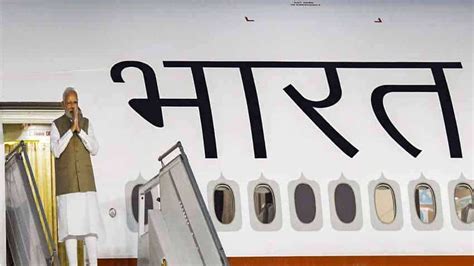 भारत